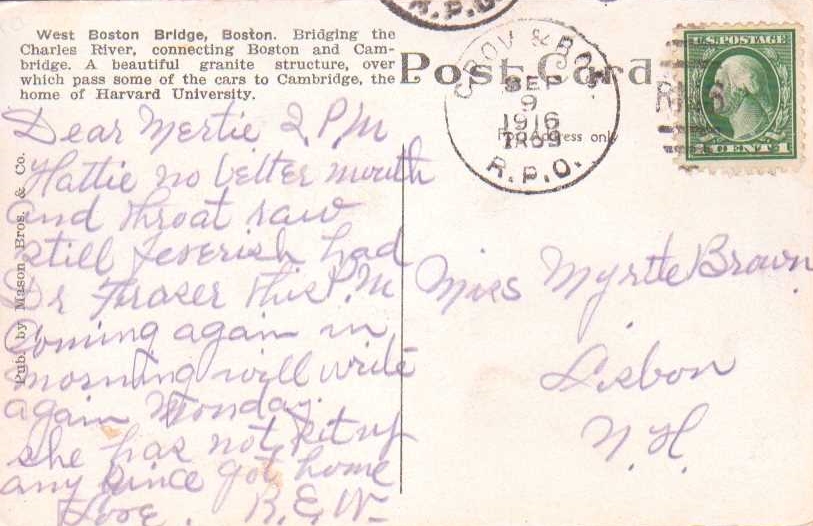 R.P.O.
West Boston Bridge, Boston. Bridging the
Charles River, connecting Boston and Cam-
bridge. A beautiful granite structure, over
which pass some of the cars to Cambridge, the
home of Harvard University.
Post Card
For Address only
SEP
9
1916
TR 69
R.P.O.
U.S. POSTAGE
CENTS 1
Pub. by Mason Bros. & Co.
Dear Mertie 2 P.M
Hattie no better mouth
and throat raw
still feverish had
Dr Fraser this P.M
Coming again in
morning will write
again Monday.
she has not set up
any since got home
Love. B.E.W.
Miss Myrtte Brown
Lisbon
N.H.